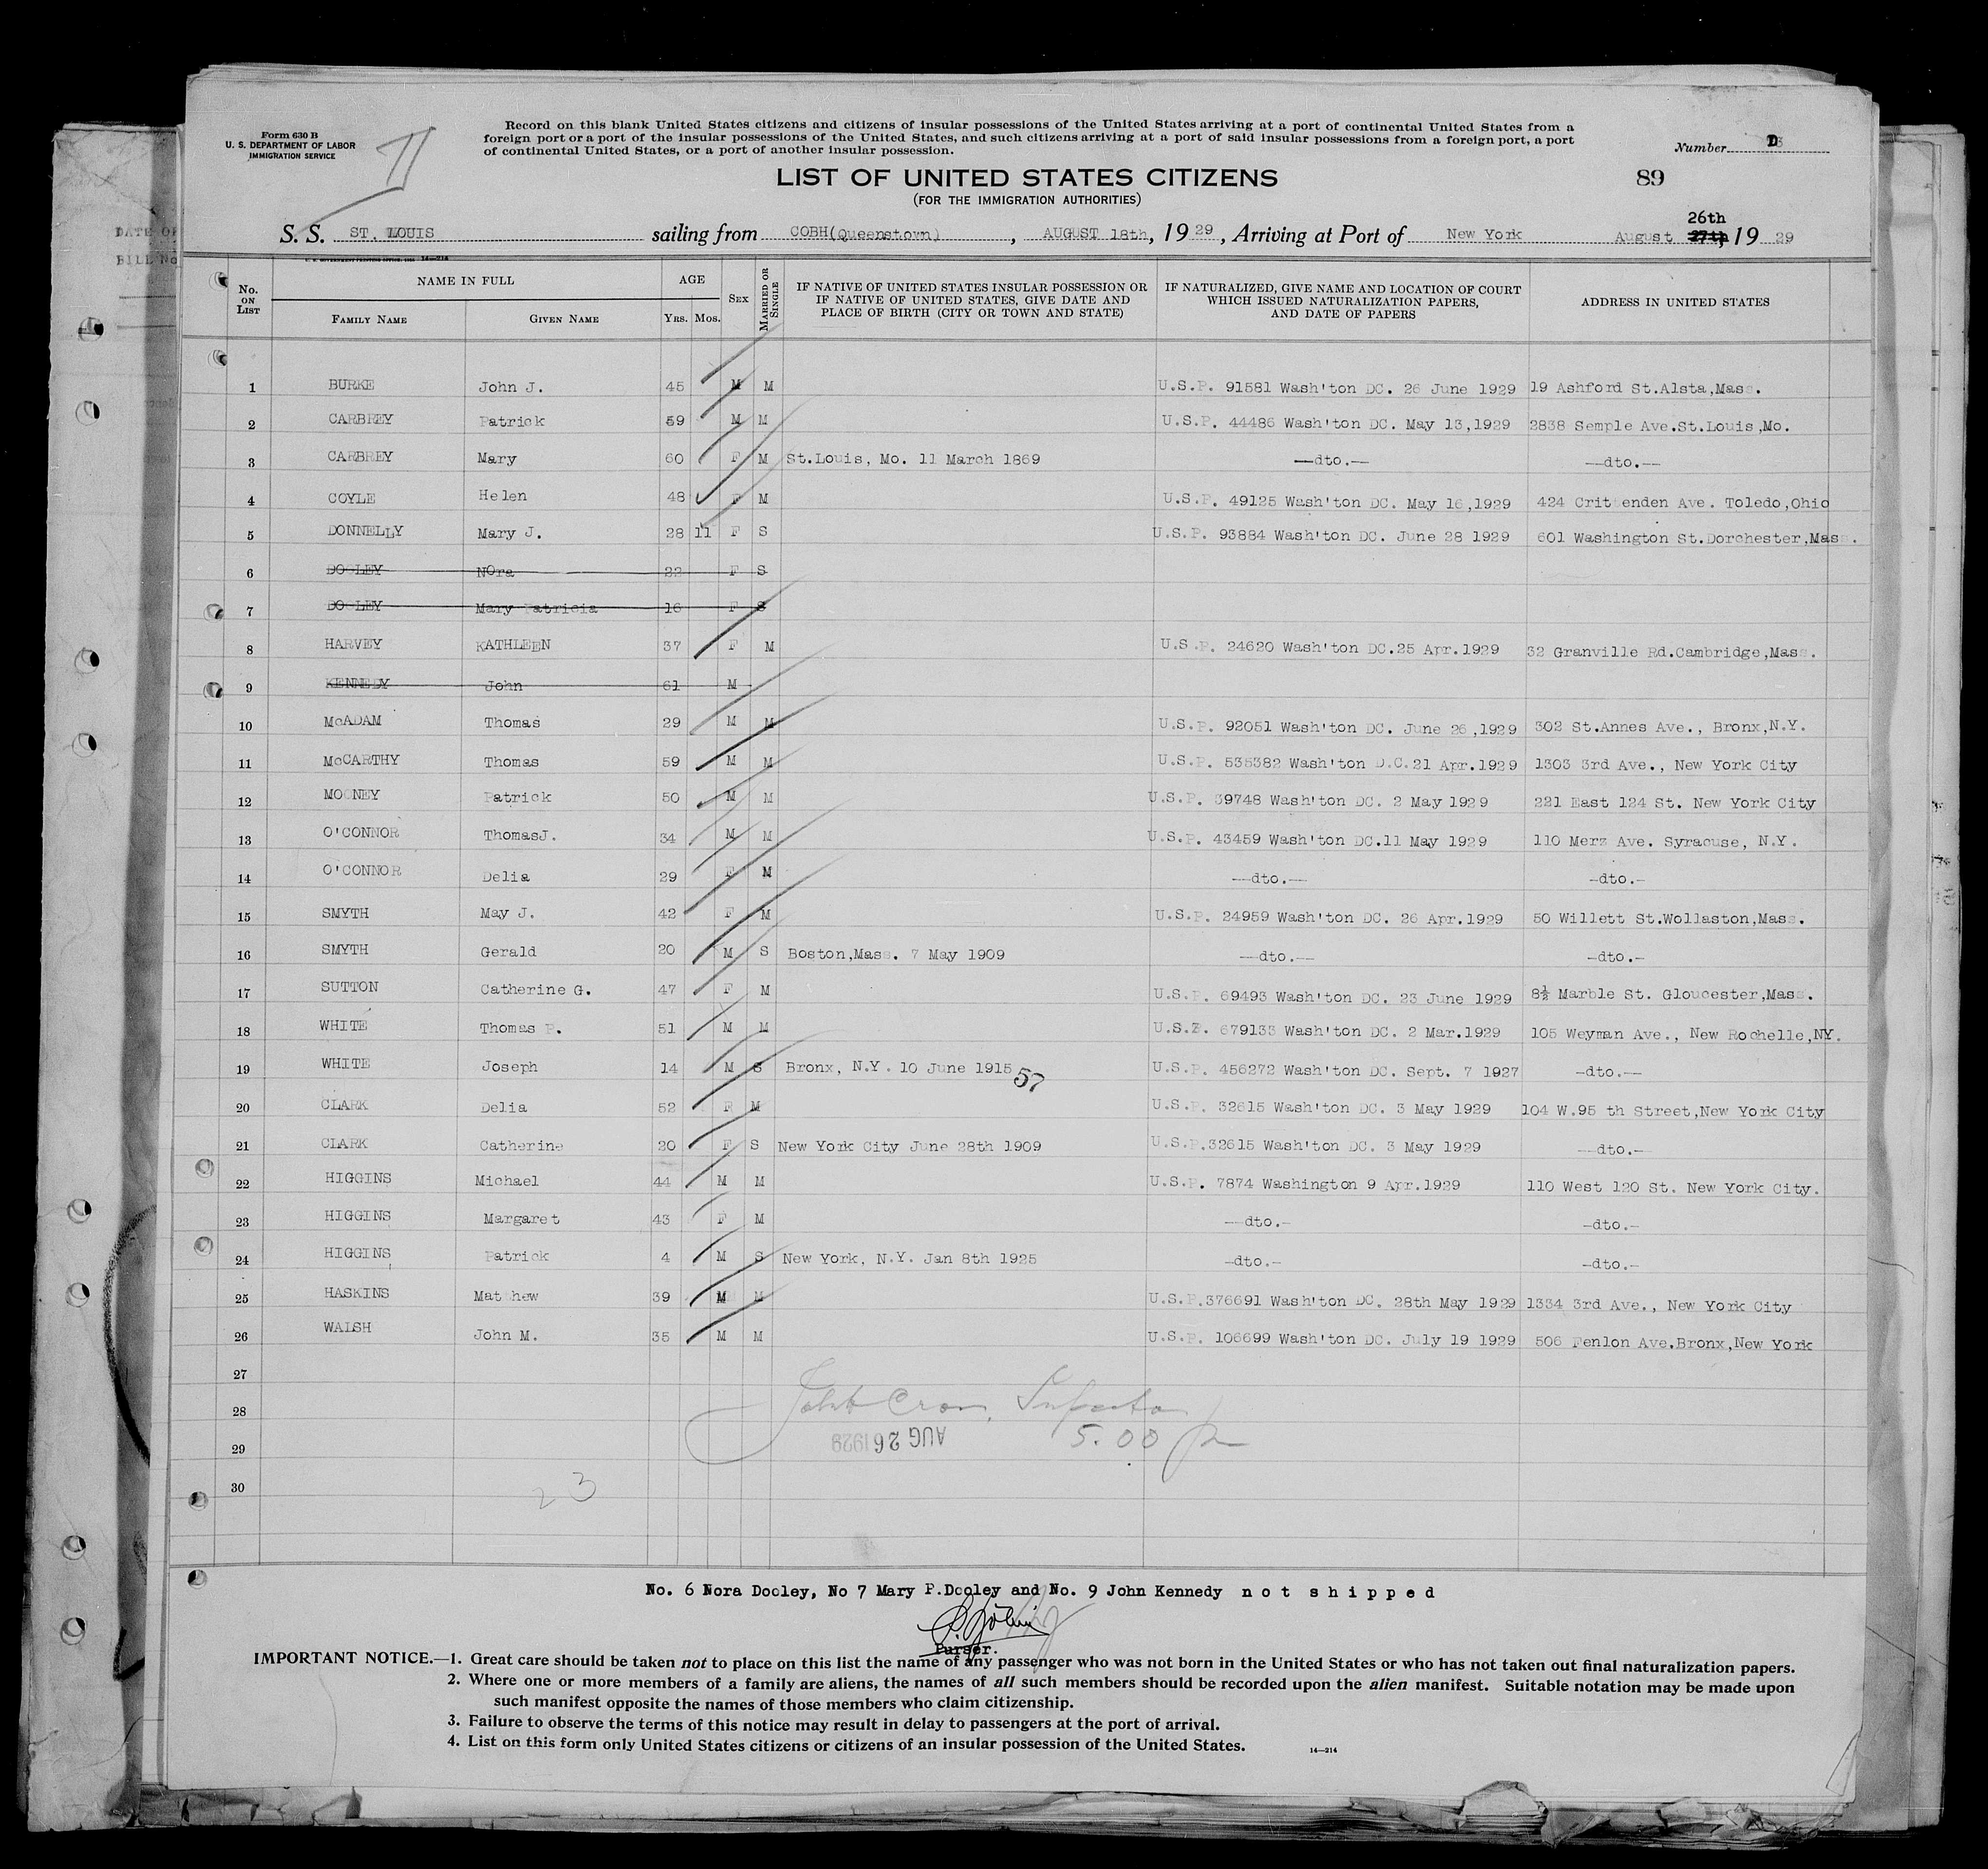 Form 630 B
U. S. DEPARTMENT OF LABOR
IMMIGRATION SERVICE
Record on this blank United States citizens and citizens of insular possessions of the United States arriving at a port of continental United States from a
foreign port or a port of the insular possessions of the United States, and such citizens arriving at a port of said insular possessions from a foreign port, a port
of continental United States, or a port of another insular possession.
Number D
LIST OF UNITED STATES CITIZENS
89
(FOR THE IMMIGRATION AUTHORITIES)
S. S. ST. LOUIS sailing from COBH(Queenstown), AUGUST 18th, 19 29, Arriving at Port of New York August 26th 27th, 19 29
No. ON LIST
NAME IN FULL
FAMILY NAME
GIVEN NAME
AGE
YRS. MOS.
SEX
MARRIED OR SINGLE
IF NATIVE OF UNITED STATES INSULAR POSSESSION OR
IF NATIVE OF UNITED STATES, GIVE DATE AND
PLACE OF BIRTH (CITY OR TOWN AND STATE)
IF NATURALIZED, GIVE NAME AND LOCATION OF COURT
WHICH ISSUED NATURALIZATION PAPERS,
AND DATE OF PAPERS
ADDRESS IN UNITED STATES
1 BURKE John J. 45 M M U.S.P. 91581 Wash'ton DC. 26 June 1929 19 Ashford St.Alsta,Mass.
2 CARBREY Patrick 59 M M U.S.P. 44486 Wash'ton DC. May 13,1929 2838 Semple Ave.St.Louis,Mo.
3 CARBREY Mary 60 F M St.Louis, Mo. 11 March 1869 —dto.— —dto.—
4 COYLE Helen 48 F M U.S.P. 49125 Wash'ton DC. May 16,1929 424 Crittenden Ave. Toledo,Ohio
5 DONNELLY Mary J. 28 11 F S U.S.P. 93884 Wash'ton DC. June 28 1929 601 Washington St.Dorchester,Mass.
6 DOOLEY NOra 22 F S
7 DOOLEY Mary Patricia 16 F S
8 HARVEY KATHLEEN 37 F M U.S.P. 24620 Wash'ton DC.25 Apr.1929 32 Granville Rd.Cambridge,Mass.
9 KENNEDY John 61 M
10 McADAM Thomas 29 M M U.S.P. 92051 Wash'ton DC. June 26,1929 302 St.Annes Ave., Bronx,N.Y.
11 McCARTHY Thomas 59 M M U.S.P. 535382 Wash'ton D.C.21 Apr.1929 1303 3rd Ave., New York City
12 MOONEY Patrick 50 M M U.S.P. 39748 Wash'ton DC. 2 May 1929 221 East 124 St. New York City
13 O'CONNOR ThomasJ. 34 M M U.S.P. 43459 Wash'ton DC.11 May 1929 110 Merz Ave. Syracuse, N.Y.
14 O'CONNOR Delia 29 F M —dto.— —dto.—
15 SMYTH May J. 42 F M U.S.P. 24959 Wash'ton DC. 26 Apr.1929 50 Willett St.Wollaston,Mass.
16 SMYTH Gerald 20 M S Boston,Mass. 7 May 1909 —dto.— —dto.—
17 SUTTON Catherine G. 47 F M U.S.P. 69493 Wash'ton DC. 23 June 1929 8½ Marble St. Gloucester,Mass.
18 WHITE Thomas P. 51 M M U.S.P. 679133 Wash'ton DC. 2 Mar.1929 105 Weyman Ave., New Rochelle,NY.
19 WHITE Joseph 14 M S Bronx, N.Y. 10 June 1915 57 U.S.P. 456272 Wash'ton DC. Sept. 7 1927 —dto.—
20 CLARK Delia 52 F M U.S.P. 32615 Wash'ton DC. 3 May 1929 104 W.95 th Street,New York City
21 CLARK Catherine 20 F S New York City June 28th 1909 U.S.P.32615 Wash'ton DC. 3 May 1929 —dto.—
22 HIGGINS Michael 44 M M U.S.P. 7874 Washington 9 Apr.1929 110 West 120 St. New York City.
23 HIGGINS Margaret 43 F M —dto.— —dto.—
24 HIGGINS Patrick 4 M S New York, N.Y. Jan 8th 1925 —dto.— —dto.—
25 HASKINS Matthew 39 M M U.S.P.376691 Wash'ton DC. 28th May 1929 1334 3rd Ave., New York City
26 WALSH John M. 35 M M U.S.P. 106699 Wash'ton DC. July 19 1929 506 Fenlon Ave.Bronx,New York
27
28
29 AUG 26 1929 5.00
30
23
No. 6 Nora Dooley, No 7 Mary P.Dooley and No. 9 John Kennedy not shipped
Purser.
IMPORTANT NOTICE.—1. Great care should be taken not to place on this list the name of any passenger who was not born in the United States or who has not taken out final naturalization papers.
2. Where one or more members of a family are aliens, the names of all such members should be recorded upon the alien manifest. Suitable notation may be made upon
such manifest opposite the names of those members who claim citizenship.
3. Failure to observe the terms of this notice may result in delay to passengers at the port of arrival.
4. List on this form only United States citizens or citizens of an insular possession of the United States.
14—214